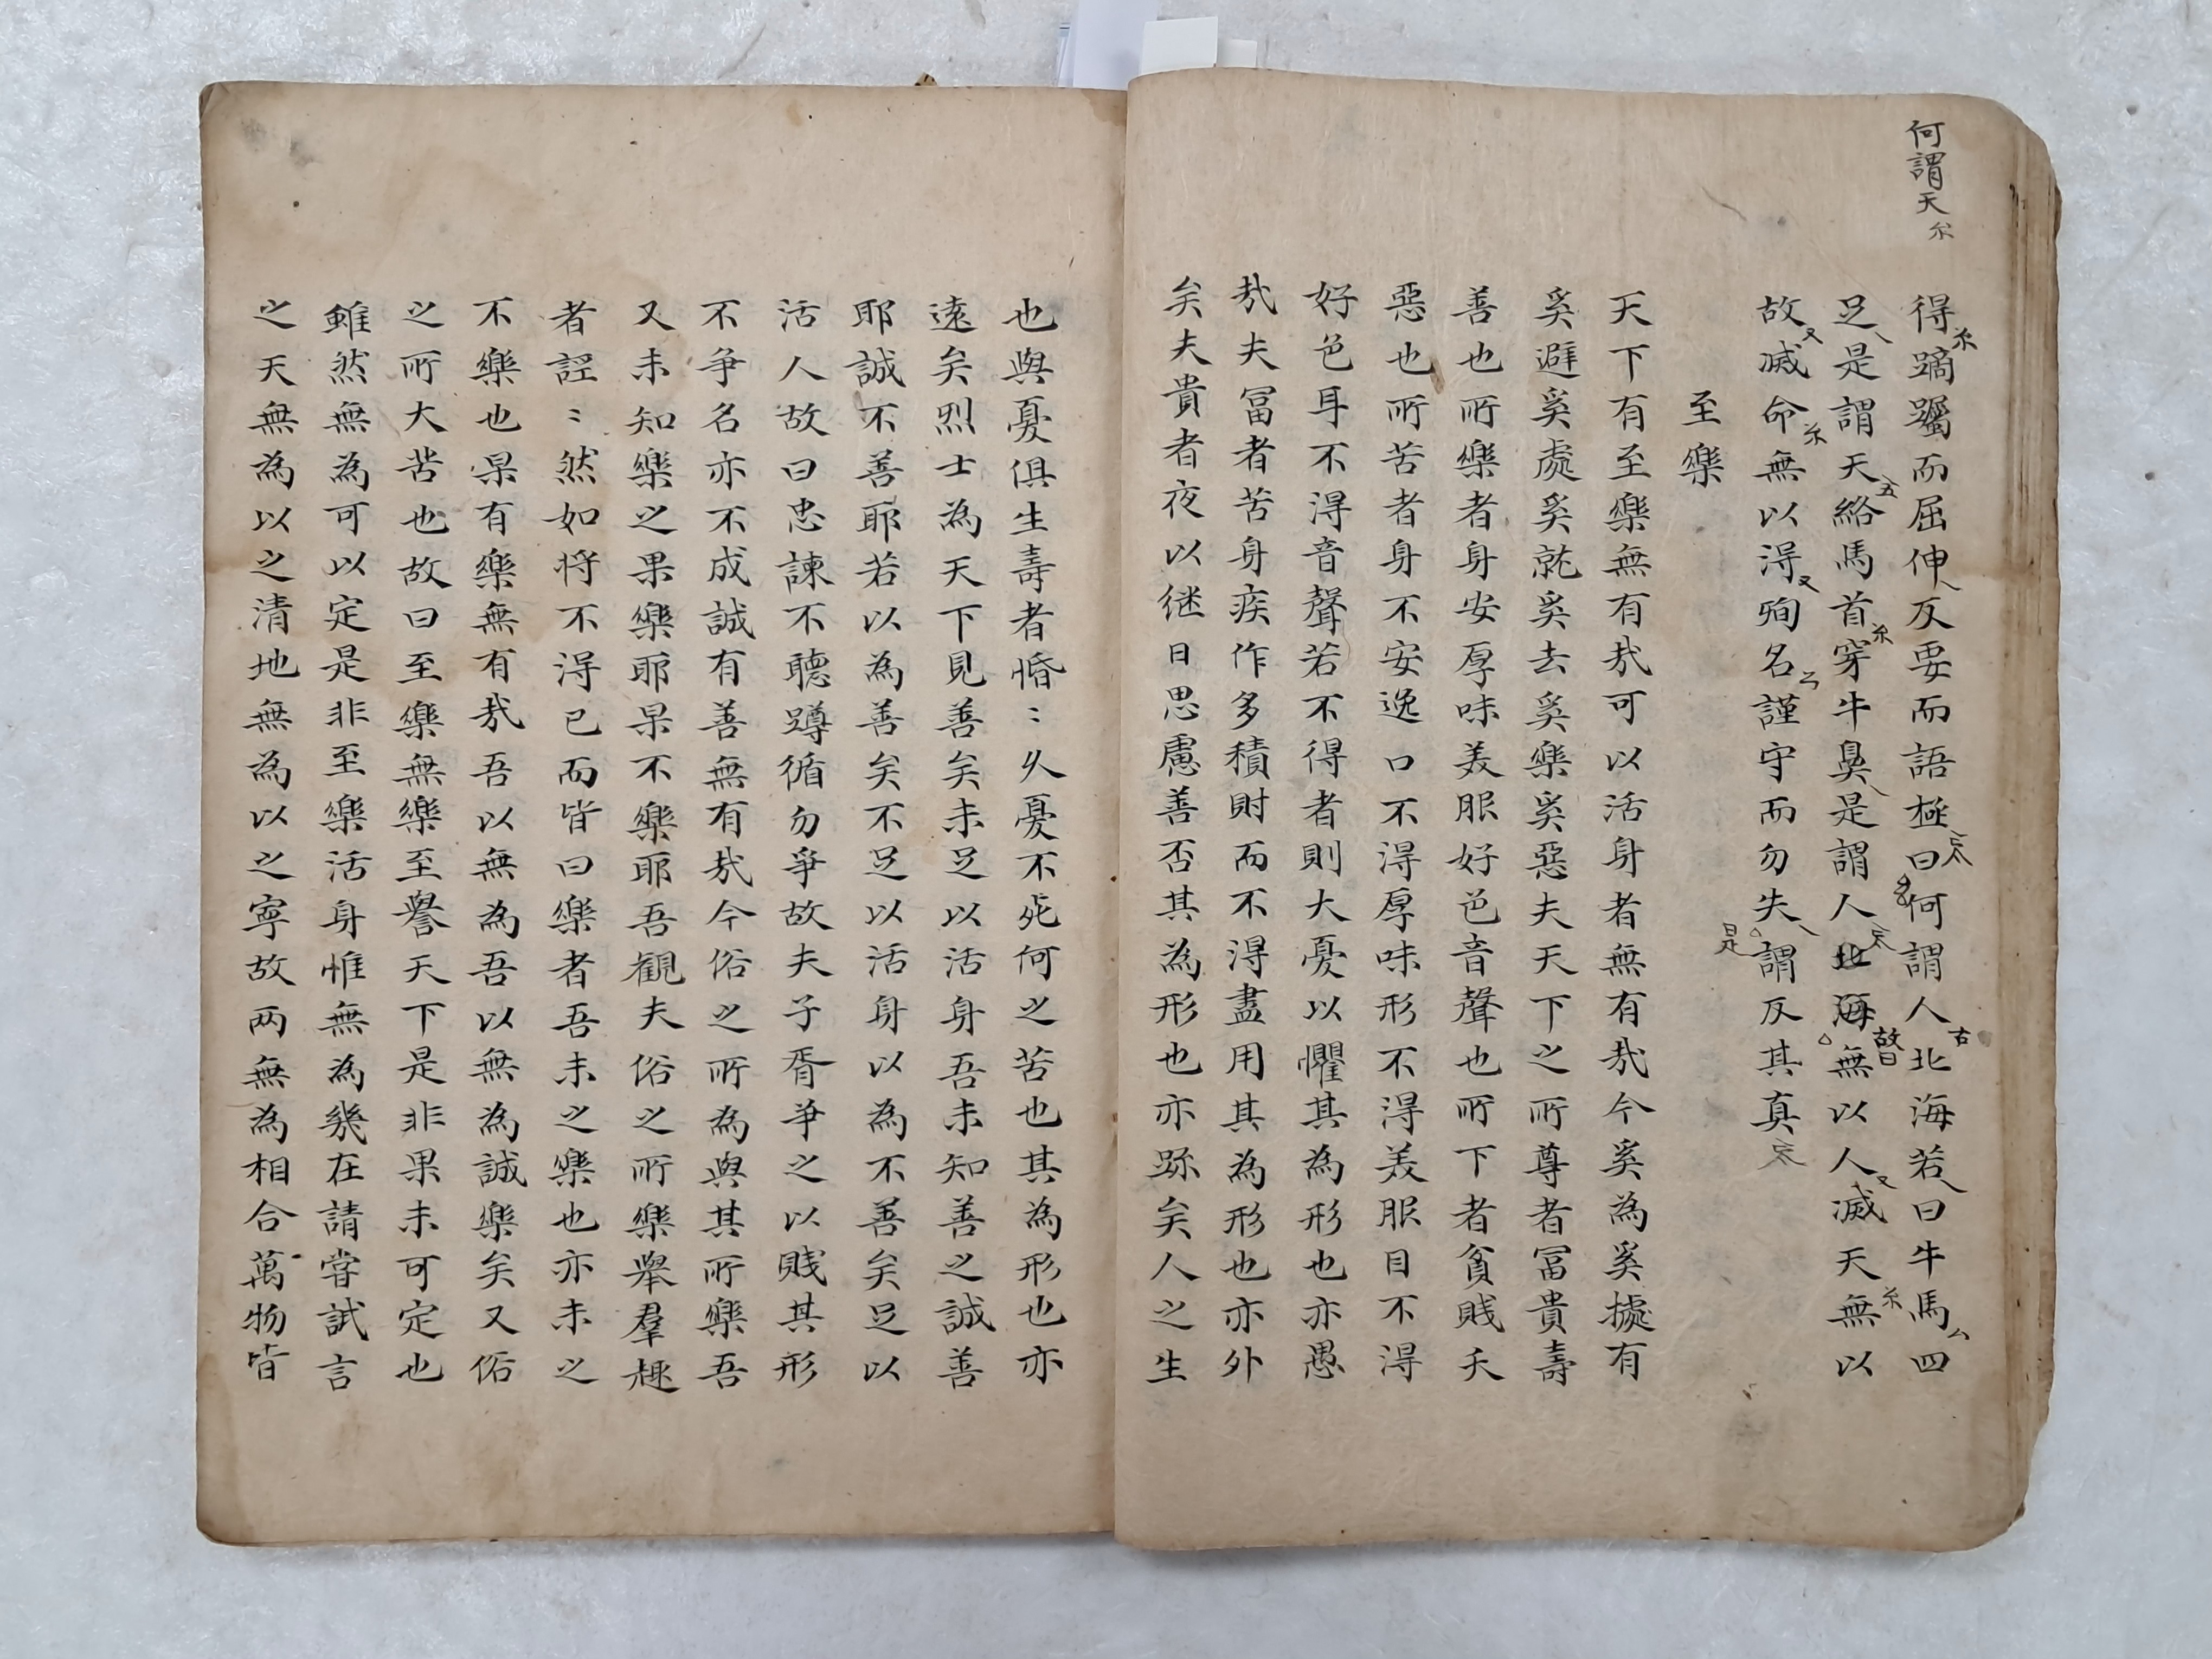 何謂天
得蹢躅而屈伸反要而語極曰何謂人北海若曰牛馬四
足是謂天絡馬首穿牛鼻是謂人北海無以人滅天無以
故曰
故滅命無以得殉名謹守而勿失謂反其真
是
至樂
天下有至樂無有㢤可以活身者無有㢤今奚為奚㩀有
奚避奚處奚就奚去奚樂奚惡夫天下之所尊者冨貴壽
善也所樂者身安厚味美服好色音聲也所下者貧賤夭
惡也所苦者身不安逸口不得厚味形不得美服目不得
好色耳不得音聲若不得者則大憂以懼其為形也亦愚
㢤夫冨者苦身疾作多積財而不得盡用其為形也亦外
矣夫貴者夜以継日思慮善否其為形也亦踈矣人之生
也與憂俱生壽者惛〻久憂不死何之苦也其為形也亦
遠矣烈士為天下見善矣未足以活身吾未知善之誠善
耶誠不善耶若以為善矣不足以活身以為不善矣足以
活人故曰忠諫不聽蹲循勿爭故夫子胥爭之以賤其形
不爭名亦不成誠有善無有㢤今俗之所為與其所樂吾
又未知樂之果樂耶果不樂耶吾觀夫俗之所樂舉羣趣
者誙〻然如将不得已而皆曰樂者吾未之樂也亦未之
不樂也果有樂無有㢤吾以無為吾以無為誠樂矣又俗
之所大苦也故曰至樂無樂至譽天下是非果未可定也
雖然無為可以定是非至樂活身惟無為幾在請嘗試言
之天無為以之清地無為以之寧故两無為相合萬物皆